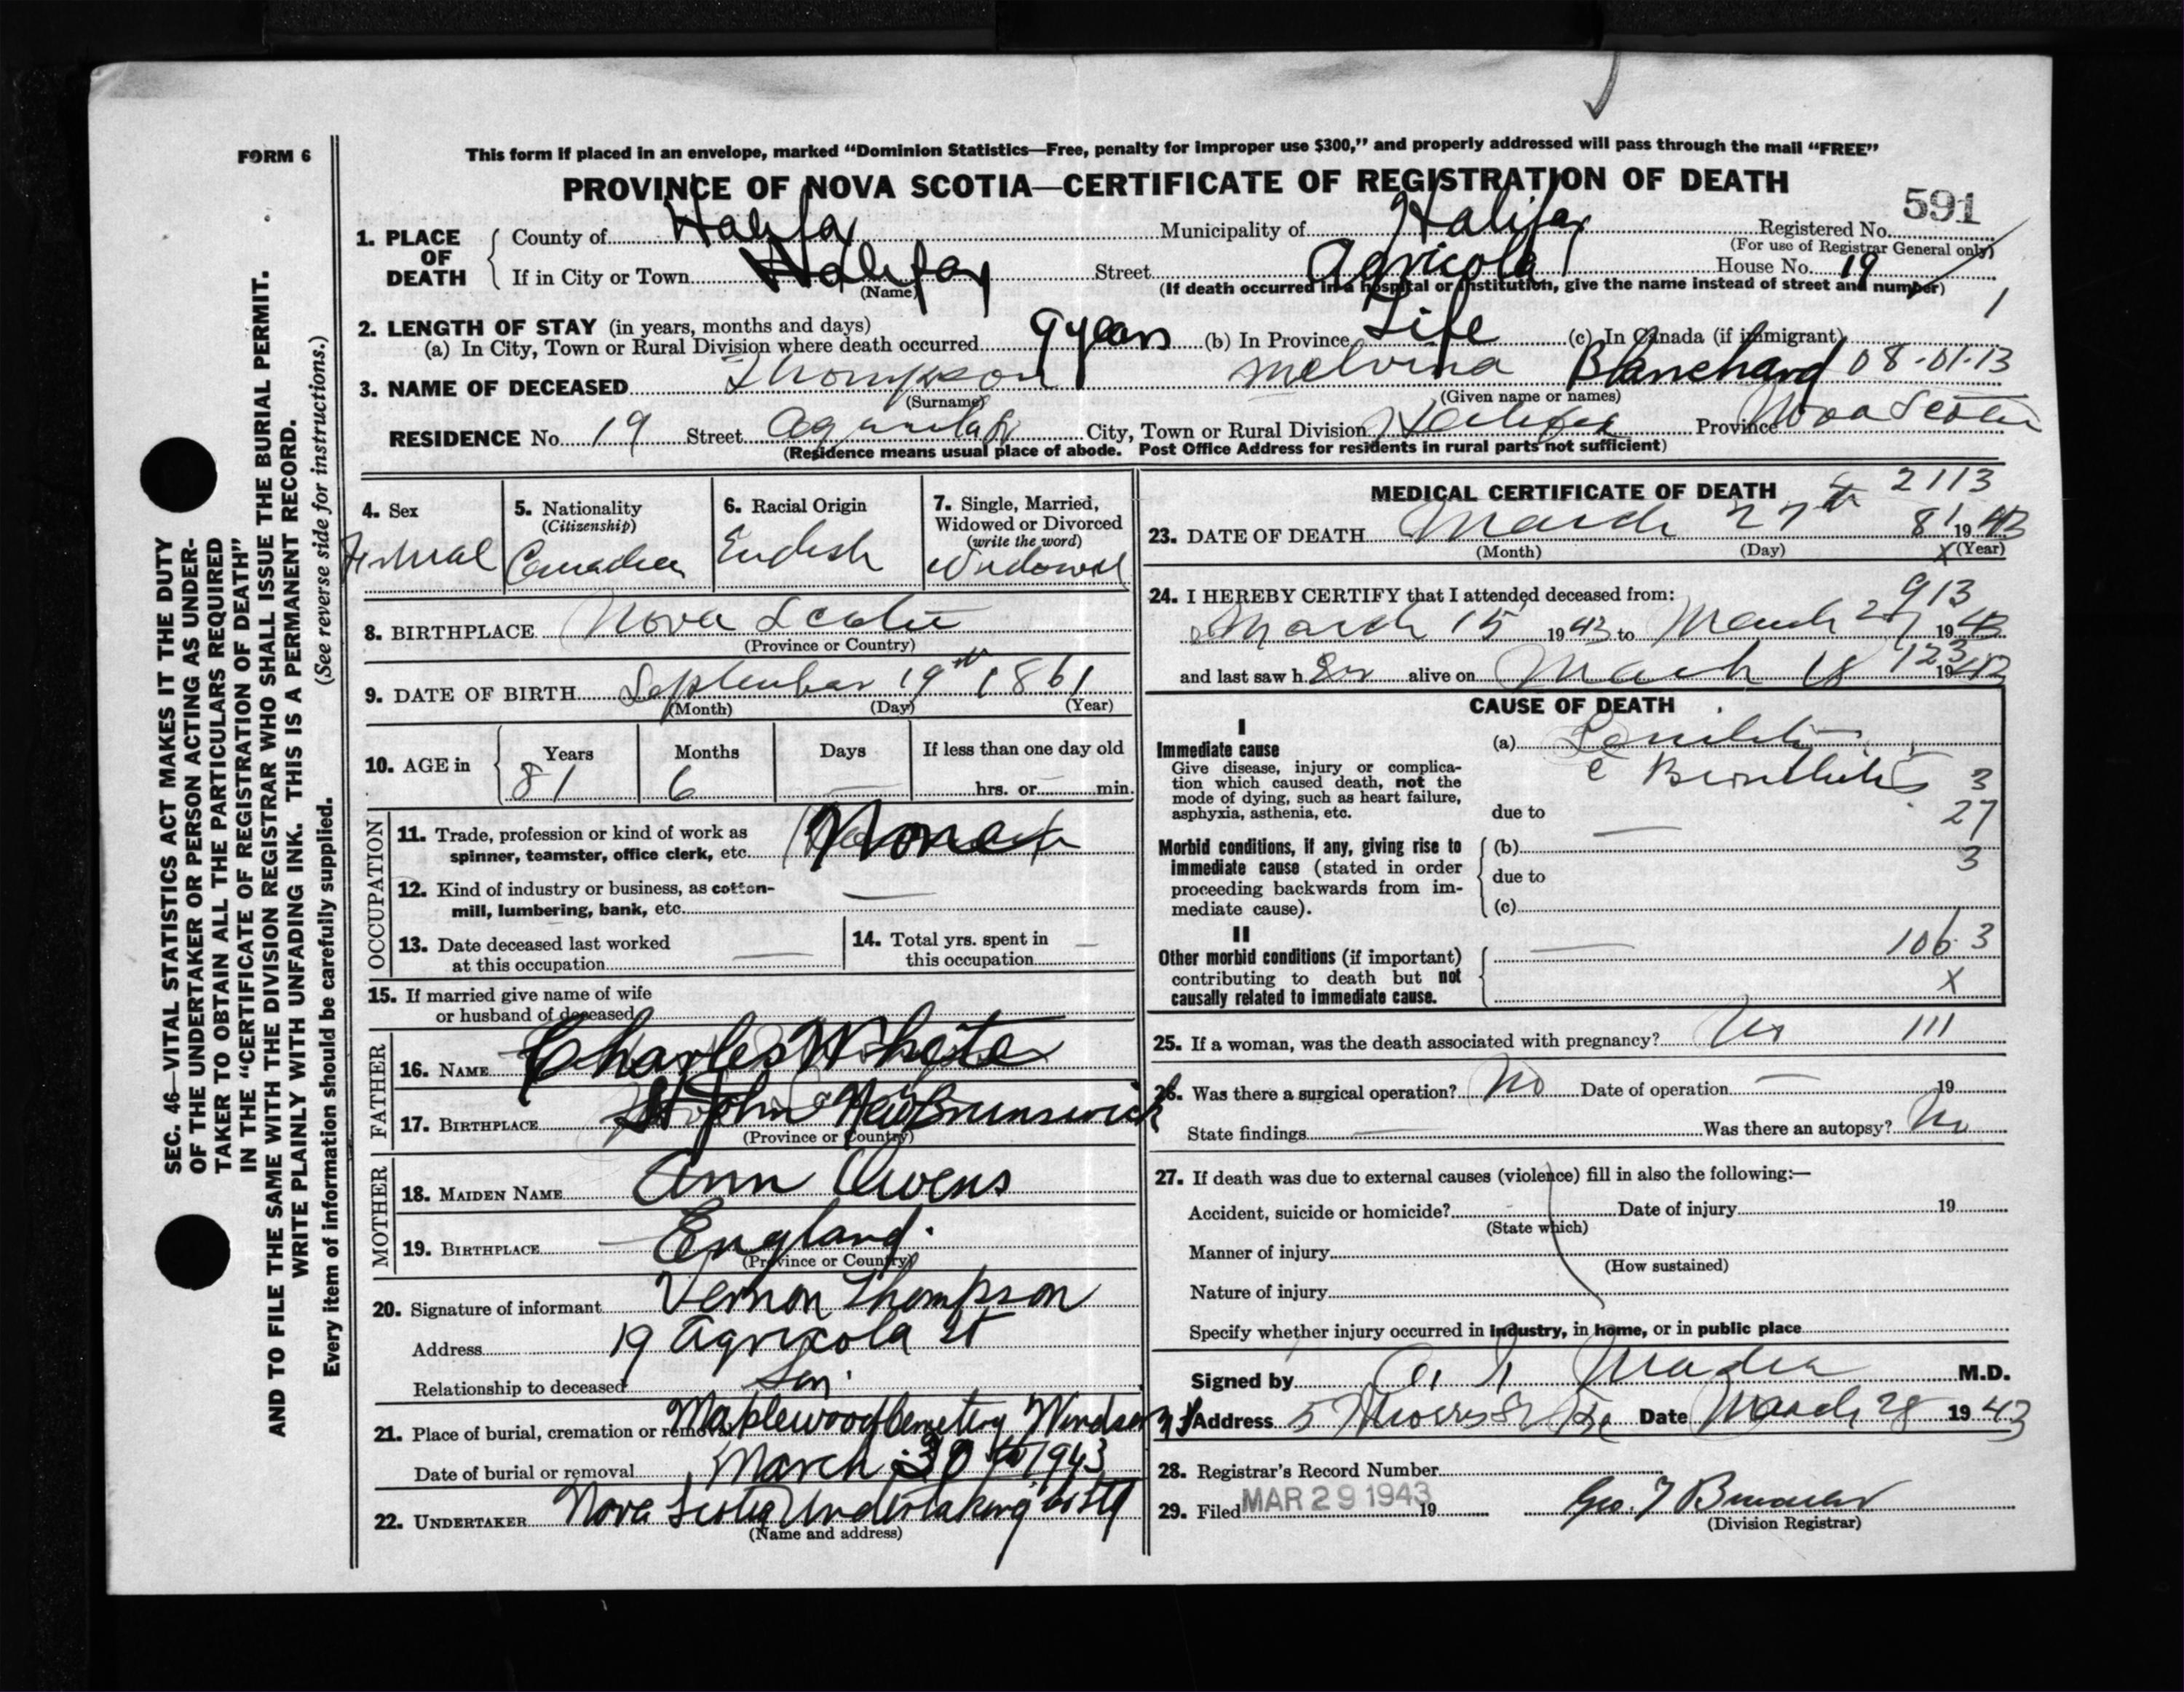 FORM 6
This form if placed in an envelope, marked “Dominion Statistics—Free, penalty for improper use $300,” and properly addressed will pass through the mail “FREE”
PROVINCE OF NOVA SCOTIA—CERTIFICATE OF REGISTRATION OF DEATH
591
1. PLACE OF DEATH
County of Halifax Municipality of Halifax Registered No.
(For use of Registrar General only)
If in City or Town Halifax Street Agricola House No. 19
(Name) (If death occurred in a hospital or institution, give the name instead of street and number)
1
2. LENGTH OF STAY (in years, months and days)
(a) In City, Town or Rural Division where death occurred 9 years (b) In Province Life (c) In Canada (if immigrant)
3. NAME OF DECEASED Thompson Melvina Blanchard 08-01-13
(Surname) (Given name or names)
RESIDENCE No. 19 Street Agricola St City, Town or Rural Division Halifax Province Nova Scotia
(Residence means usual place of abode. Post Office Address for residents in rural parts not sufficient)
4. Sex
Femal
5. Nationality
(Citizenship)
Canadian
6. Racial Origin
English
7. Single, Married,
Widowed or Divorced
(write the word)
Widowed
8. BIRTHPLACE Nova Scotia
(Province or Country)
9. DATE OF BIRTH September 19th 1861
(Month) (Day) (Year)
10. AGE in
Years Months Days If less than one day old
81 6 — hrs. or min.
OCCUPATION
11. Trade, profession or kind of work as
spinner, teamster, office clerk, etc. None
12. Kind of industry or business, as cotton-
mill, lumbering, bank, etc. —
13. Date deceased last worked
at this occupation —
14. Total yrs. spent in
this occupation —
15. If married give name of wife
or husband of deceased
FATHER
16. NAME Charles White
17. BIRTHPLACE St John New Brunswick
(Province or Country)
MOTHER
18. MAIDEN NAME Ann Owens
19. BIRTHPLACE England.
(Province or Country)
20. Signature of informant Vernon Thompson
Address 19 Agricola St
Relationship to deceased Son.
21. Place of burial, cremation or removal Maplewood Cemetery Windsor
Date of burial or removal March 30th 1943
22. UNDERTAKER Nova Scotia Undertaking Co Ltd
(Name and address)
MEDICAL CERTIFICATE OF DEATH 2113
23. DATE OF DEATH March 27th 81 1943
(Month) (Day) x (Year)
24. I HEREBY CERTIFY that I attended deceased from: 913
March 15 1943 to March 27 1943
123
and last saw her alive on March 18 1943
CAUSE OF DEATH
I
Immediate cause
Give disease, injury or complica-
tion which caused death, not the
mode of dying, such as heart failure,
asphyxia, asthenia, etc.
(a) Senility
c Bronchitis 3
due to 27
Morbid conditions, if any, giving rise to
immediate cause (stated in order
proceeding backwards from im-
mediate cause).
(b) — 3
due to
(c)
II
Other morbid conditions (if important)
contributing to death but not
causally related to immediate cause.
— 106.3
X
25. If a woman, was the death associated with pregnancy? No 111
26. Was there a surgical operation? No Date of operation — 19
State findings — Was there an autopsy? No
27. If death was due to external causes (violence) fill in also the following:—
Accident, suicide or homicide? Date of injury 19
(State which)
Manner of injury
(How sustained)
Nature of injury
Specify whether injury occurred in industry, in home, or in public place
Signed by Mader M.D.
Address 57 Morris St Date March 28 1943
28. Registrar’s Record Number
29. Filed MAR 29 1943 19
(Division Registrar)
SEC. 46—VITAL STATISTICS ACT MAKES IT THE DUTY
OF THE UNDERTAKER OR PERSON ACTING AS UNDER-
TAKER TO OBTAIN ALL THE PARTICULARS REQUIRED
IN THE “CERTIFICATE OF REGISTRATION OF DEATH”
AND TO FILE THE SAME WITH THE DIVISION REGISTRAR WHO SHALL ISSUE THE BURIAL PERMIT.
WRITE PLAINLY WITH UNFADING INK. THIS IS A PERMANENT RECORD.
Every item of information should be carefully supplied. (See reverse side for instructions.)